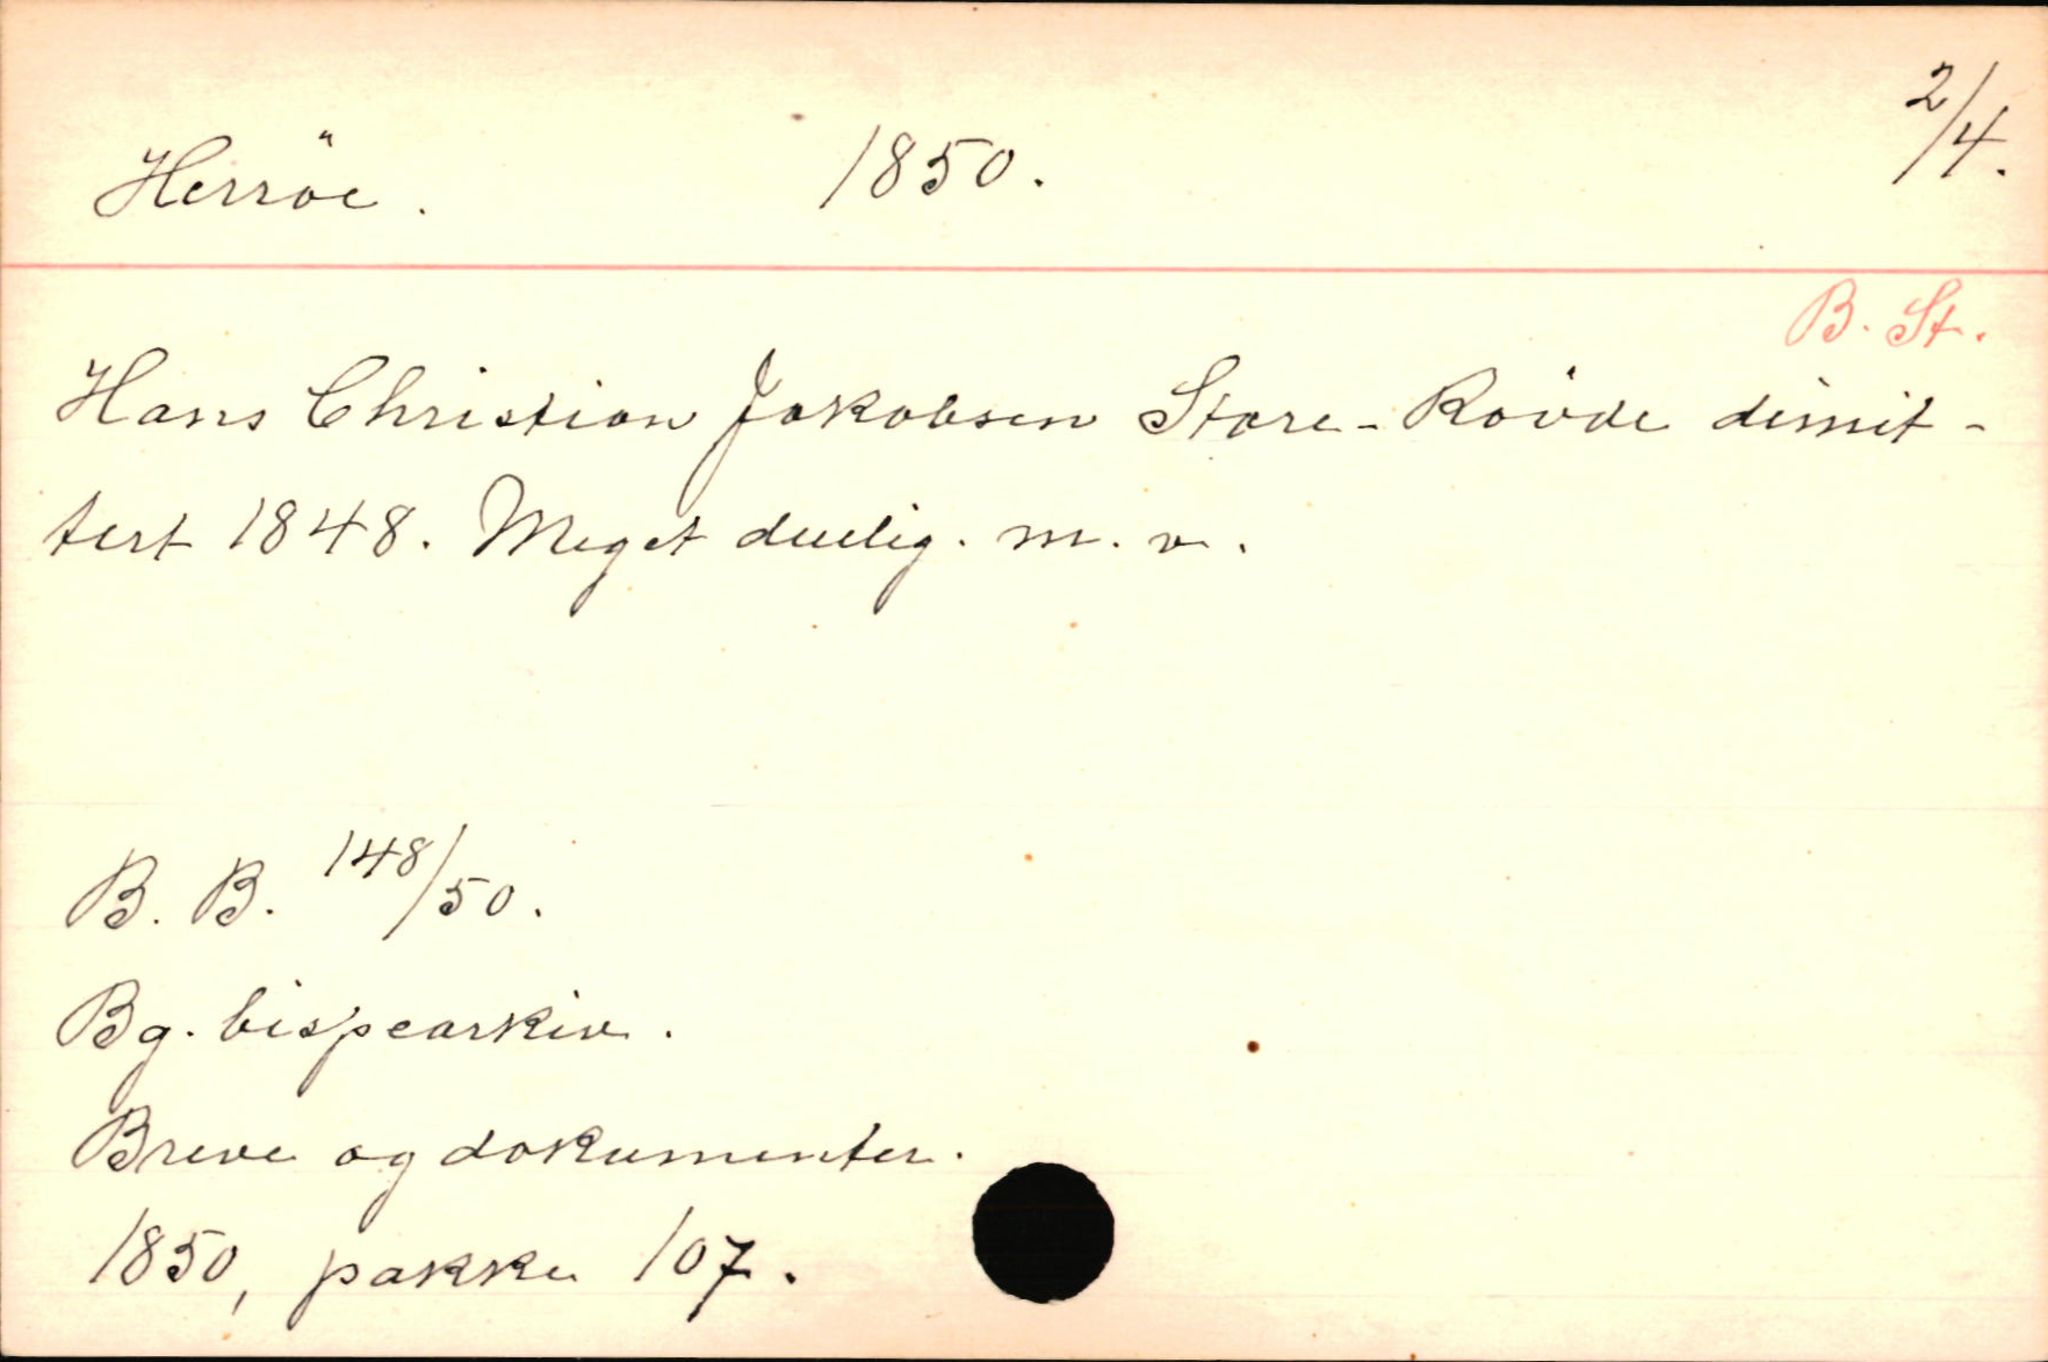 Herröe. 1850. 2/4.
B. St.
Hans Christian Jakobsen Store-Rövde dimit-
tert 1848. Meget duelig. m. v.
B. B. 148/50.
Bg. bispearkiv.
Breve og dokumenter.
1850, pakke 107.